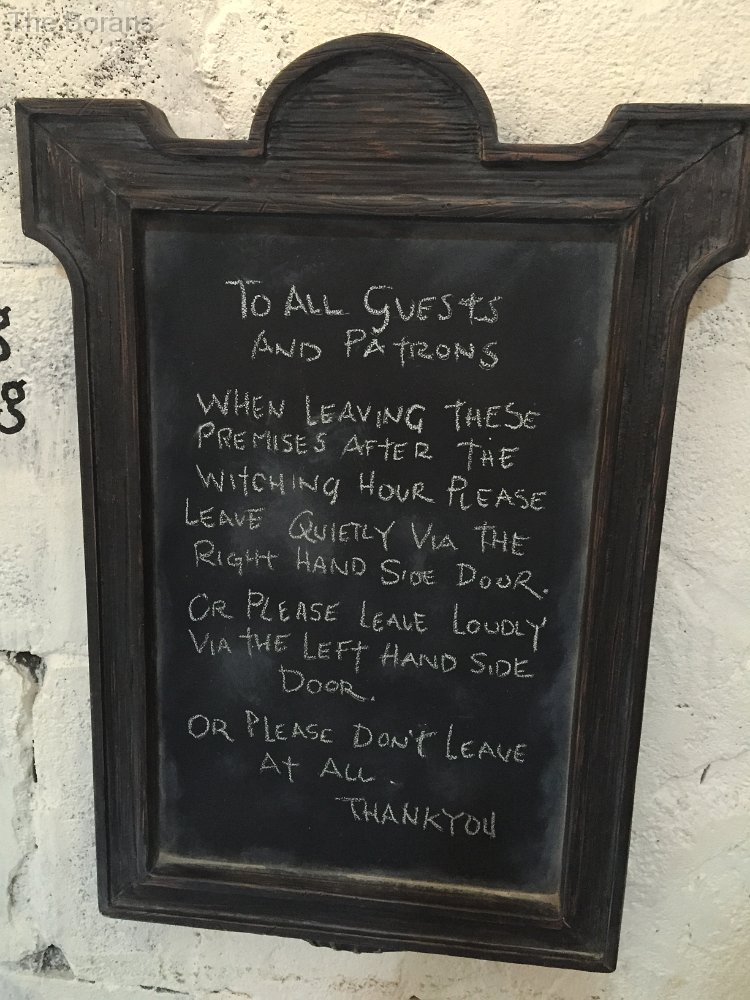 The Sorans
To All Guests
AND PATRONS
WHEN LEAVING THESE
PREMISES AFTER THE
WITCHING HOUR PLEASE
LEAVE QUIETLY VIA THE
RIGHT HAND SIDE DOOR.
OR PLEASE LEAVE LOUDLY
VIA THE LEFT HAND SIDE
DOOR.
OR PLEASE DON'T LEAVE
AT ALL.
THANKYOU